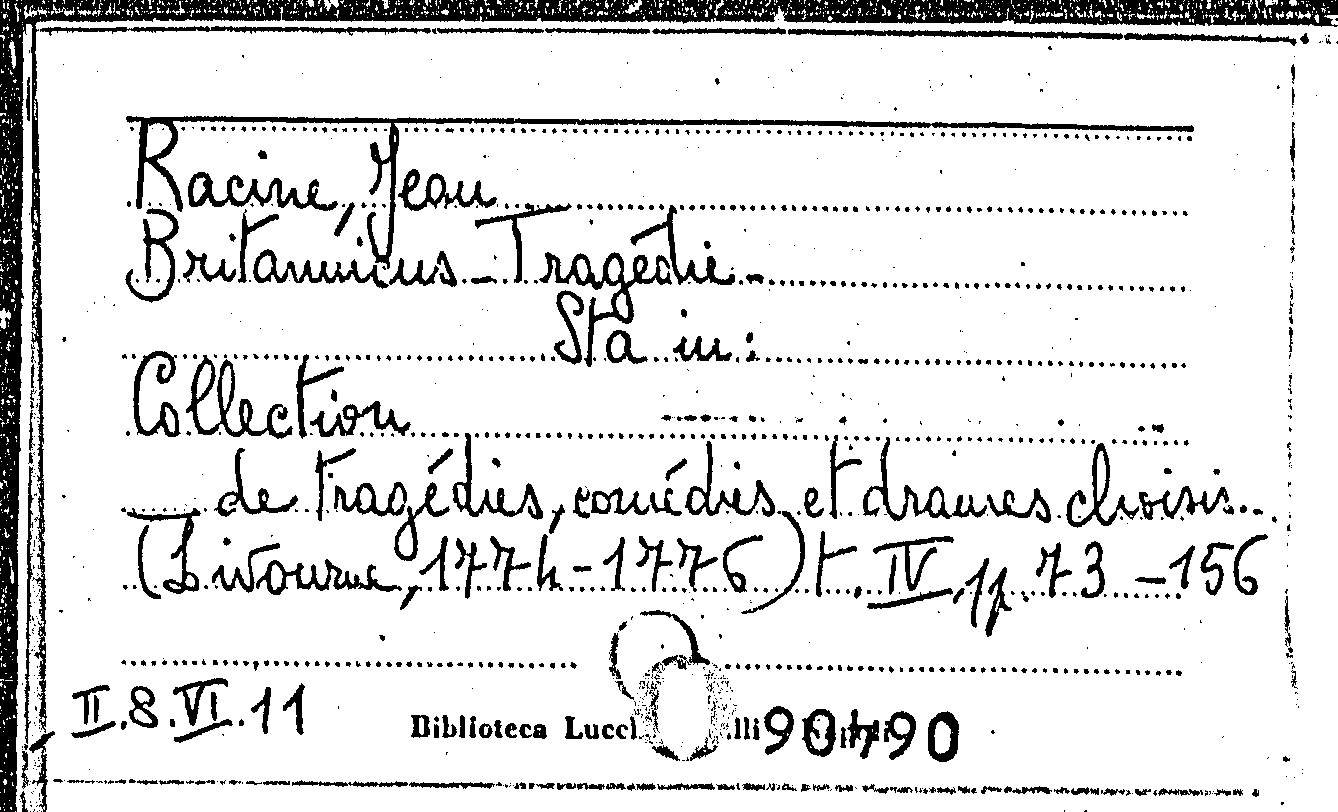 Racine, Jean
Britannicus - Tragédie -
Sta in:
Collection
de tragédies, comédies et drames choisis...
(Livourne, 1774-1776) t. IV, pp. 73 - 156
II.8.VI.11
Biblioteca 90490